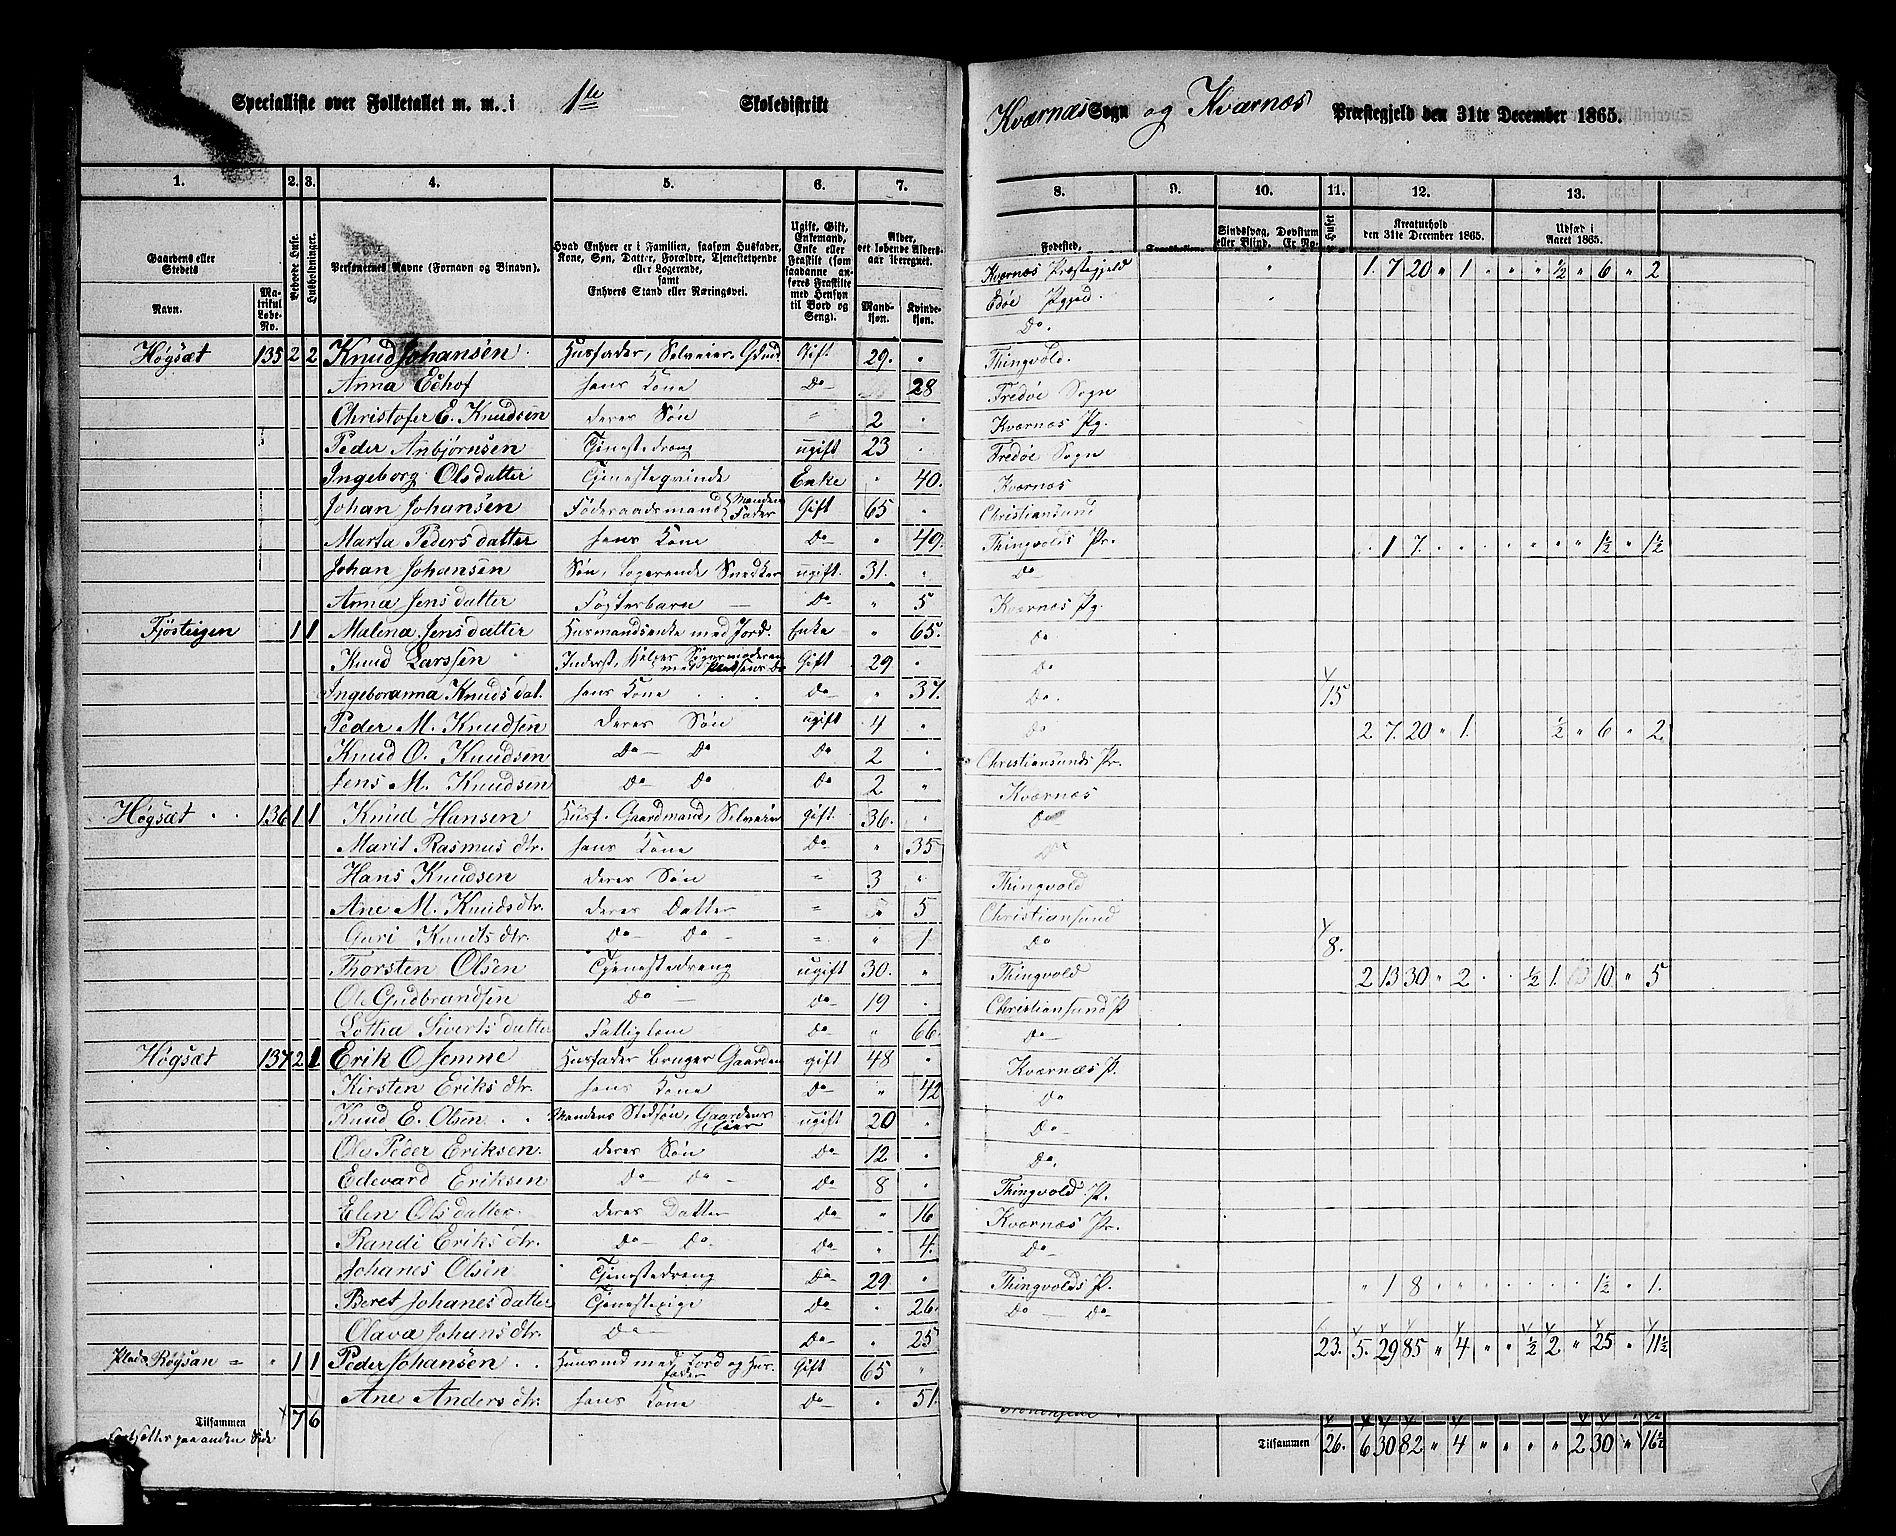 Specialliste over Folketallet m. m. i 1te Skoledistrikt
Kværnæs Sogn og Kværnæs Præstegjeld den 31te December 1865.
1. 2. 3. 4. 5. 6. 7.
Gaardens eller Stedets
Navn.
Matrikul Løbe-No.
Bebøede Huse.
Husholdninger.
Personernes Navne (Fornavn og Binavn).
Hvad Enhver er i Familien, saasom Husfader, Kone, Søn, Datter, Forældre, Tjenestetyende eller Logerende, samt Enhvers Stand eller Næringsvei.
Ugift, Gift, Enkemand, Enke eller Fraskilt (som saadanne anføres Fraskilte med Hensyn til Bord og Seng).
Alder, det løbende Alders-aar iberegnet.
Mandkjøn. Kvindekjøn.
Høgsæt 135 2 2 Knud Johansen Husfader, Selveier. Gbmd Gift 29. "
Anna Echof hans Kone Do 28
Christofer E. Knudsen deres Søn " 2
Peder Anbjørnsen Tjenestedreng ugift 23
Ingeborg Olsdatter Tjenesteqvinde Enke " 40.
Johan Johansen Føderaadsmand Mandens Fader Gift 65 "
Marta Pedersdatter hans Kone Do " 49.
Johan Johansen Søn, logerende, Snedker ugift. 31. "
Anna Jensdatter Fosterbarn Do " 5
Fjøsteigen 1 1 Malena Jensdatter Husmandsenke med Jord. Enke " 65.
Knud Larssen Inderst, hjelper Svigermoderen med Gift 29 "
Ingeboranna Knudsdat. hans Kone Do " 37.
Peder M. Knudsen deres Søn ugift 4 "
Knud O. Knudsen Do Do Do 2
Jens M. Knudsen Do Do Do 2 "
Høgsæt 136 1 1 Knud Hansen Husf. Gaardmand, Selveier gift. 36. "
Marit Rasmusdtr. hans Kone Do " 35
Hans Knudsen deres Søn " 3 "
Ane M. Knudsdtr. deres Datter " 5
Guri Knudtsdtr. Do Do " " 1
Thorsten Olsen Tjenestedreng ugift 30. "
Ole Gudbrandsen Do Do 19
Lottia Sivertsdatter Fattiglem Do " 66
Høgsæt 137 2 1 Erik O Jemne Husfader bruger Gaarden gift 48 "
Kirsten Eriksdtr. hans Kone Do " 42
Knud E. Olsen Mandens Stedsøn, Gaardens Eier ugift 20
Ole Peder Eriksen deres Søn Do 12 "
Edevard Eriksen Do Do Do 8 "
Elen Olsdatter. deres Datter Do " 16
Randi Eriksdtr. Do Do Do " 4.
Johanes Olsen Tjenestedreng Do 29 "
Beret Johanesdatter Tjenestepige Do " 26.
Olava Johansdtr. Do Do " 25
Plads Røgsan " 1 1 Peder Johansen Husmd med Jord og Husfader Gift 65 "
Ane Andersdtr. hans Kone Do " 51.
Tilsammen 7 6
Fortsættes paa anden Side
8. 9. 10. 11. 12. 13.
Fødested,
Sindssvag, eller Blind.
Døvstum Er No-
Huset
Kreaturhold den 31te December 1865.
Udsæd i Aaret 1865.
Kværnæs Præstegjeld " 1. 7 20 " 1 " " " ½ " 6 " 2
Edøe Pgjeld. "
Do.
Thingvold.
Fredøe Sogn
Kværnæs Pg.
Fredøe Sogn
Kværnæs
Christiansund
Thingvolds Pr. 1 7. " 1½ " 1½
Do
Kværnæs Pg.
Do
Do
Do. 15
Do 2. 7. 20 " 1. ½ " 6 " 2.
Christiansunds Pr.
Kværnæs
Do
Do
Thingvold
Christiansund
Do 8.
Thingvold 2 13 30 " 2 ½ 1. 10 " 5
Christiansund P.
Do
Kværnæs P.
Do
Do
Do.
Thingvold P.
Kværnæs Pr.
Do
Thingvolds P. " 1 8 " 1½ " 1.
Do Do
23. 5. 29 85 " 4 " " ½ 2 " 25 " 11½
Tilsammen 26. 6 30 82 " 4 " " " " 2 30 " 16½